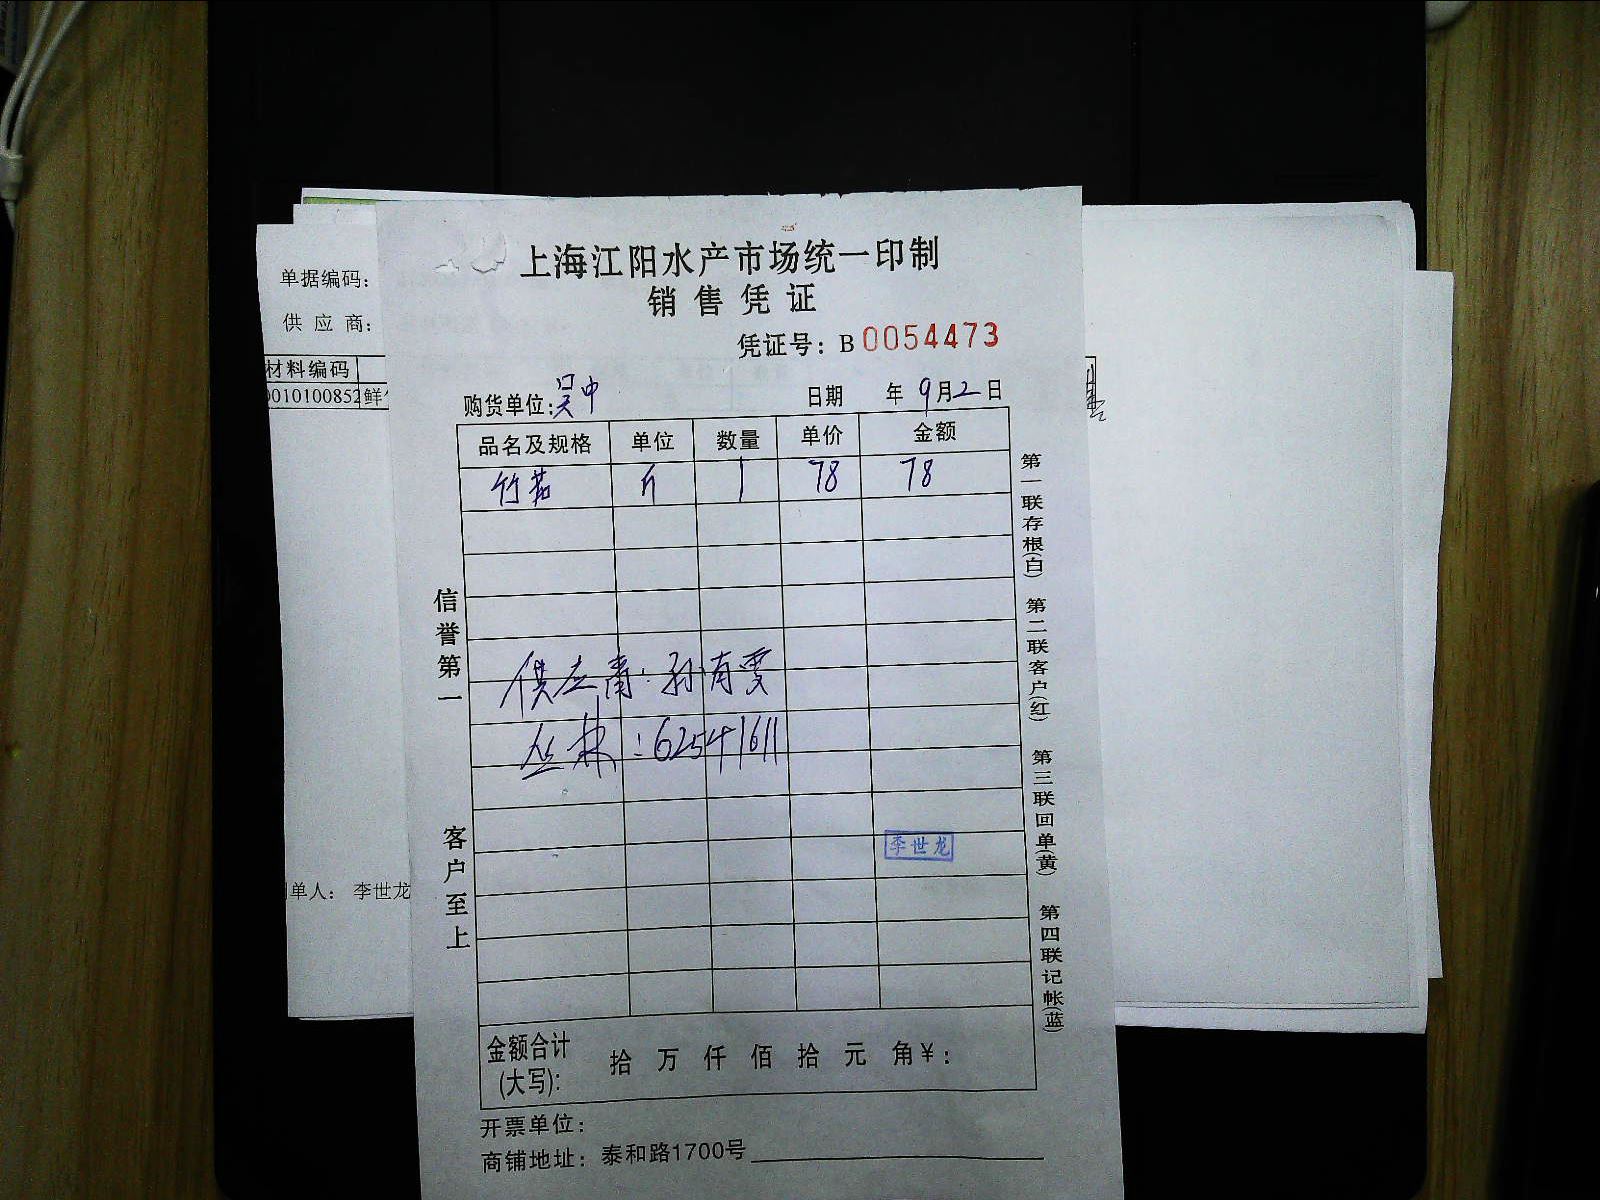 上海江阳水产市场统一印制
销售凭证
凭证号：B 0054473
购货单位:吴中 日期 年 9月2日
品名及规格 单位 数量 单价 金额
竹茹 斤 1 78 78
供应商：孙有雯
丛林：62541611
李世龙
金额合计(大写): 拾 万 仟 佰 拾 元 角¥：
开票单位：
商铺地址：泰和路1700号
信誉第一
客户至上
第一联存根(白) 第二联客户(红) 第三联回单(黄) 第四联记帐(蓝)
单据编码：
供应商：
材料编码
0010100852 鲜
单人： 李世龙